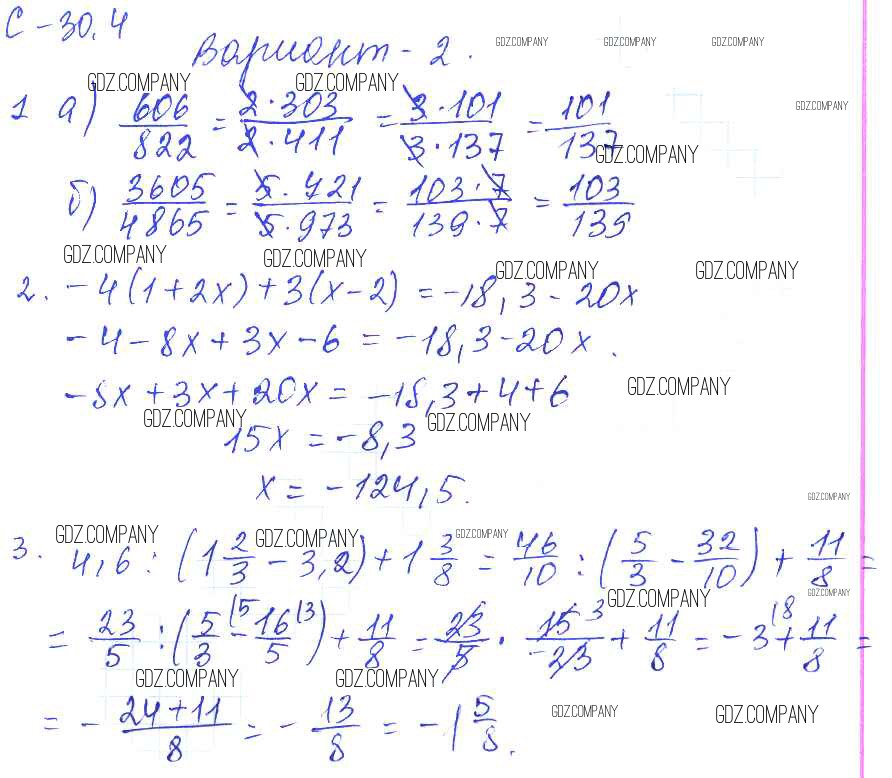 С - 30.4
Вариант - 2.
GDZ.COMPANY GDZ.COMPANY GDZ.COMPANY
GDZ.COMPANY GDZ.COMPANY GDZ.COMPANY
1 а) 606/822 = 2·303/2·411 = 3·101/3·137 = 101/137
GDZ.COMPANY
б) 3605/4865 = 5·721/5·973 = 103·7/139·7 = 103/139
GDZ.COMPANY GDZ.COMPANY GDZ.COMPANY GDZ.COMPANY
2. -4(1+2x)+3(x-2) = -18,3-20x
-4-8x+3x-6 = -18,3-20x.
-8x+3x+20x = -18,3+4+6
GDZ.COMPANY
GDZ.COMPANY GDZ.COMPANY
15x = -8,3
x = -124,5.
GDZ.COMPANY
GDZ.COMPANY GDZ.COMPANY GDZ.COMPANY
3. 4,6 : (1 2/3 - 3,2) + 1 3/8 = 46/10 : (5/3 - 32/10) + 11/8 =
GDZ.COMPANY GDZ.COMPANY
= 23/5 : (5/3 (5 - 16/5 (3) + 11/8 = 23/5 · 15 3/-23 + 11/8 = -3 (8 + 11/8 =
GDZ.COMPANY GDZ.COMPANY
= - 24+11/8 = - 13/8 = -1 5/8.
GDZ.COMPANY GDZ.COMPANY